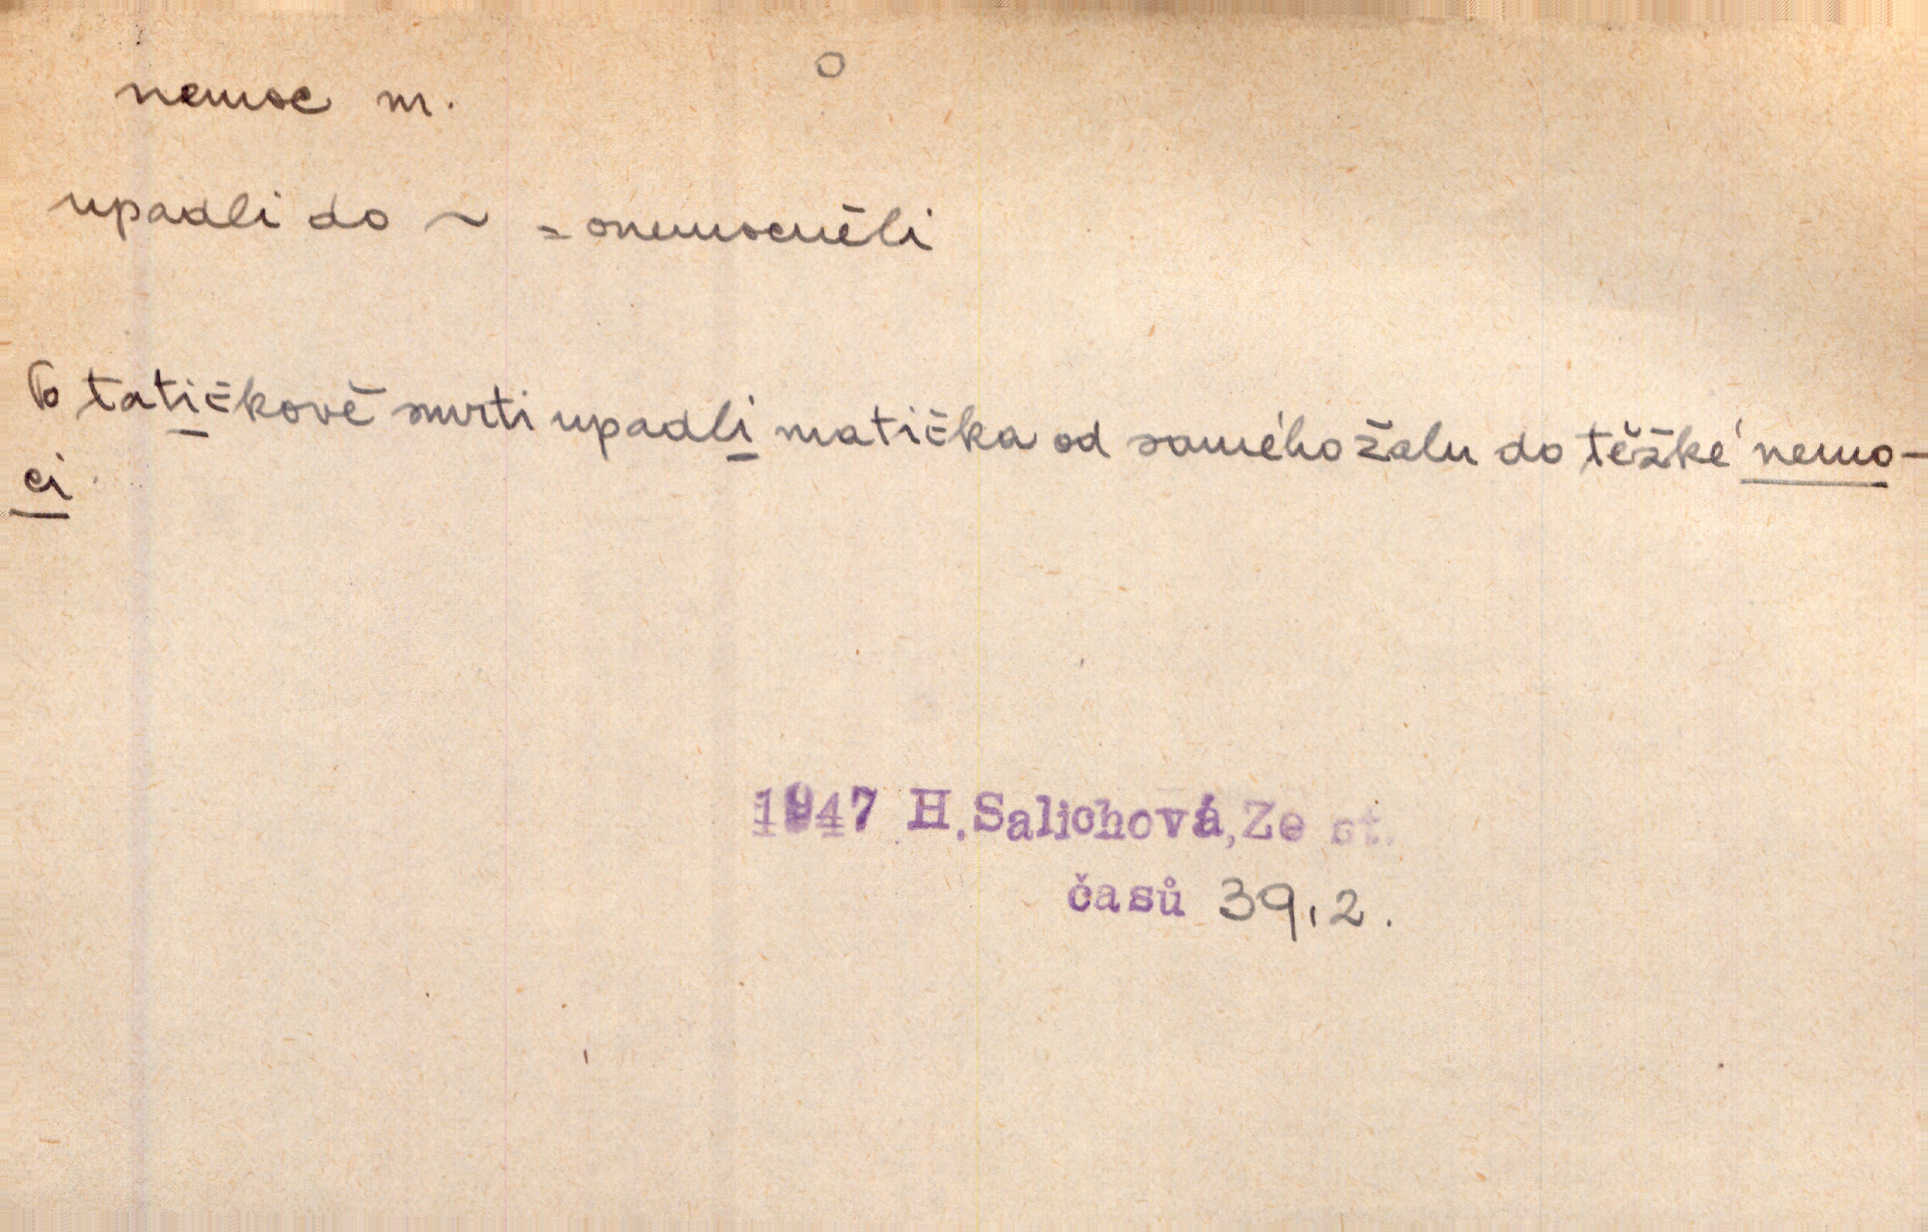 o
nemoc m.
upadli do ~ = onemocněli
Po tatičkově smrti upadli matička od samého žalu do těžké nemo-
ci
1947 H.Salichová,Ze st.
časů 39,2.